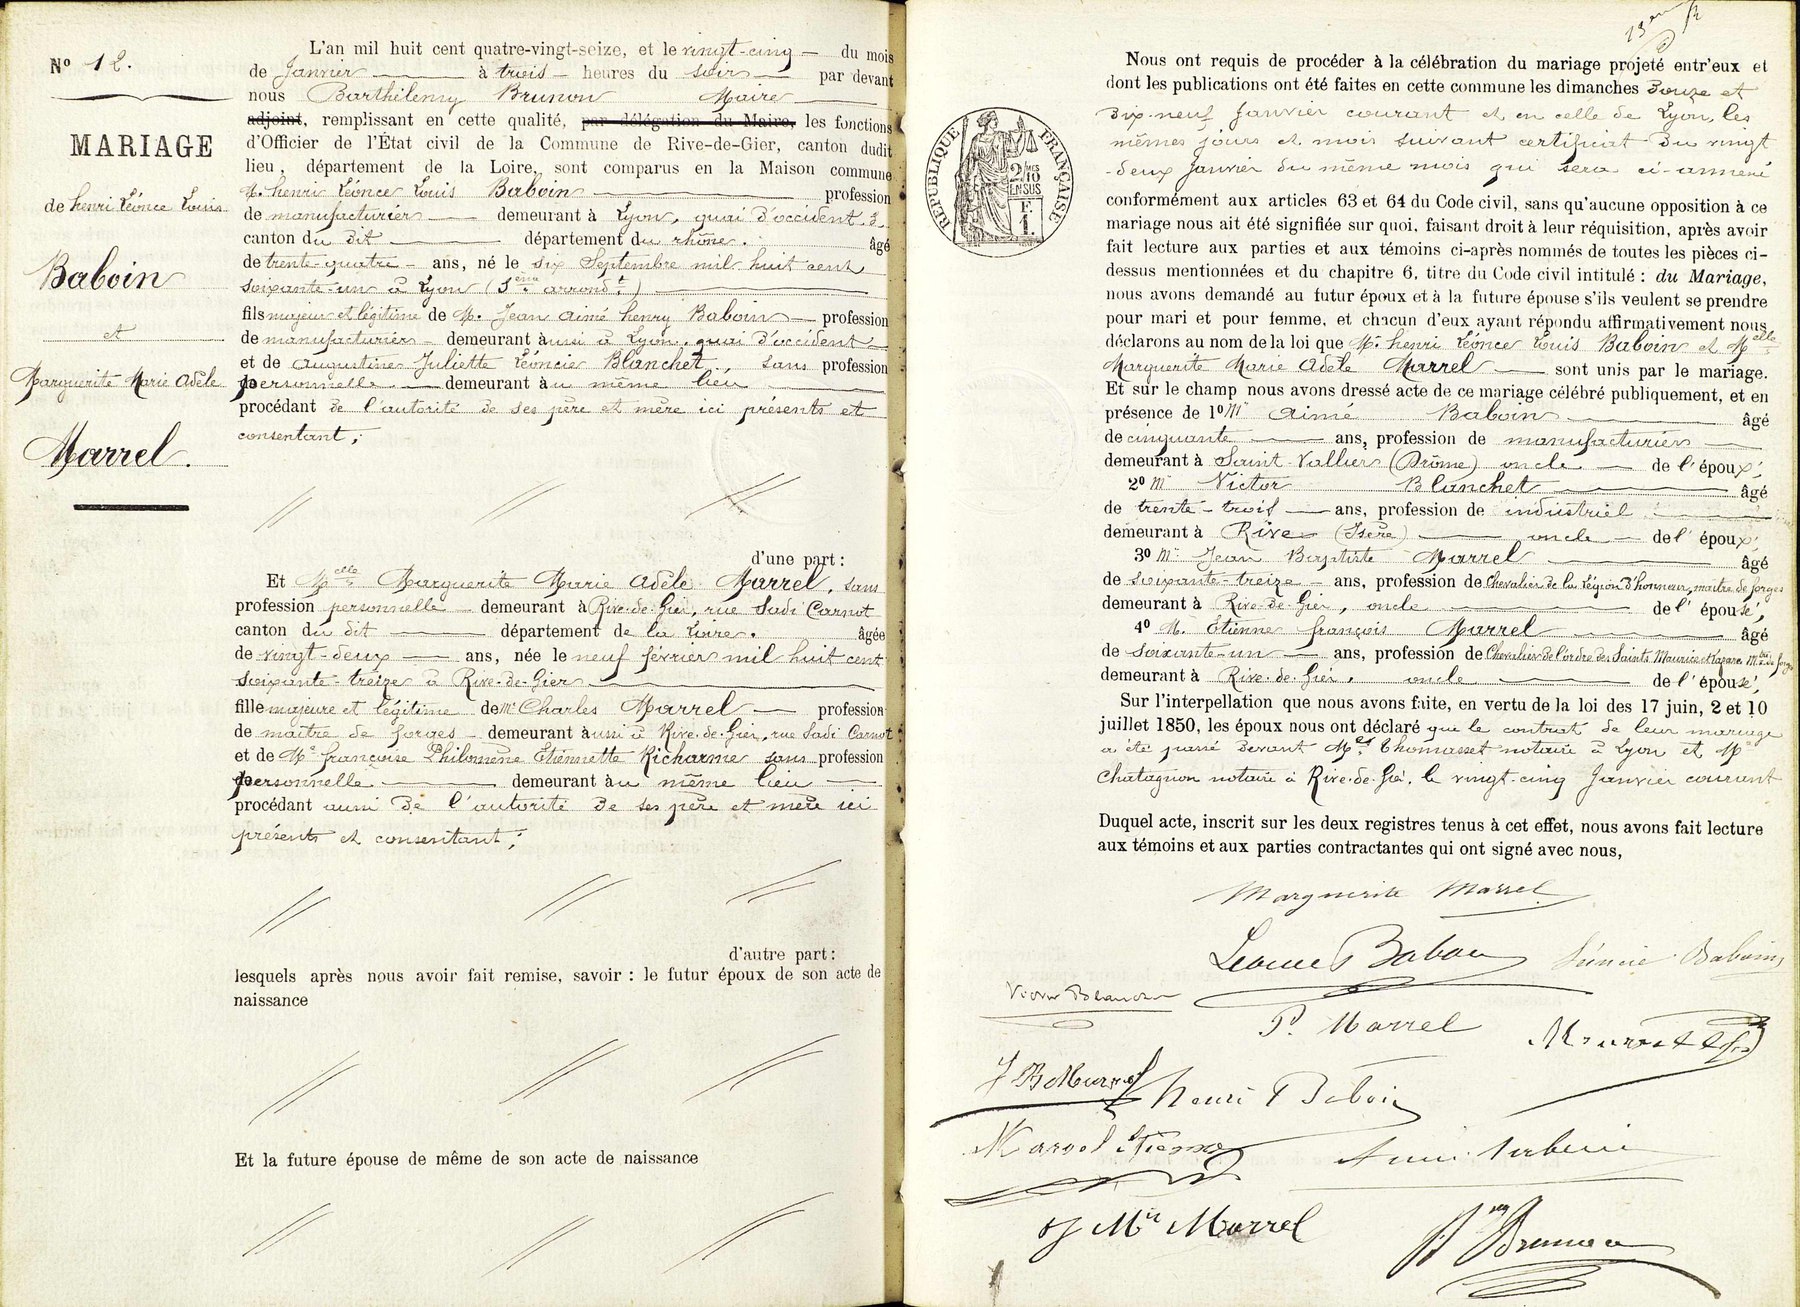 N° 12.
MARIAGE
de henri Léonce Louis
Baboin
et
Marguerite Marie Adèle
Marrel.
L'an mil huit cent quatre-vingt-seize, et le vingt-cinq du mois
de Janvier à trois heures du soir par devant
nous Barthélemy Brunon Maire
adjoint, remplissant en cette qualité, par délégation du Maire, les fonctions
d'Officier de l'État civil de la Commune de Rive-de-Gier, canton dudit
lieu, département de la Loire, sont comparus en la Maison commune
M. henri Léonce Louis Baboin profession
de manufacturier demeurant à Lyon, quai d'occident, 2
canton du dit département du rhône. âgé
de trente-quatre ans, né le six Septembre mil huit cent
soixante-un à Lyon ( arrondt.)
fils majeur et légitime de M. Jean Aimé henry Baboin profession
de manufacturier demeurant aussi à Lyon, quai d'occident
et de augustine Juliette Léoncie Blanchet, sans profession
personnelle demeurant au même lieu
procédant de l'autorité de ses père et mère ici présents et
consentant;
d'une part :
Et Melle Marguerite Marie Adèle Marrel, sans
profession personnelle demeurant à Rive-de-Gier, rue Sadi Carnot
canton du dit département de la Loire. âgée
de vingt-deux ans, née le neuf février mil huit cent
soixante-treize à Rive-de-Gier
fille majeure et légitime de Mr Charles Marrel profession
de maître de forges demeurant aussi à Rive-de-Gier, rue Sadi Carnot
et de Me françoise Philomène Etiennette Richarme sans profession
personnelle demeurant au même lieu
procédant aussi de l'autorité de ses père et mère ici
présents et consentant;
d'autre part :
lesquels après nous avoir fait remise, savoir : le futur époux de son acte de
naissance
Et la future épouse de même de son acte de naissance
Nous ont requis de procéder à la célébration du mariage projeté entr'eux et
dont les publications ont été faites en cette commune les dimanches Douze et
Dix-neuf Janvier courant et en celle de Lyon, les
mêmes jours et mois suivant certificat du vingt
deux Janvier du même mois qui sera ci-annexé
RÉPUBLIQUE FRANÇAISE
2/10
EN SUS
F.
1.
conformément aux articles 63 et 64 du Code civil, sans qu'aucune opposition à ce
mariage nous ait été signifiée sur quoi, faisant droit à leur réquisition, après avoir
fait lecture aux parties et aux témoins ci-après nommés de toutes les pièces ci-
dessus mentionnées et du chapitre 6, titre du Code civil intitulé : du Mariage,
nous avons demandé au futur époux et à la future épouse s'ils veulent se prendre
pour mari et pour femme, et chacun d'eux ayant répondu affirmativement nous
déclarons au nom de la loi que Mr henri Léonce Louis Baboin et Melle
Marguerite Marie Adèle Marrel sont unis par le mariage.
Et sur le champ nous avons dressé acte de ce mariage célébré publiquement, et en
présence de 1° Mr Aimé Baboin âgé
de cinquante ans, profession de manufacturier
demeurant à Saint-Vallier (Drôme) oncle de l'époux;
2° Mr Victor Blanchet âgé
de trente-trois ans, profession de industriel
demeurant à Rive (Isère) oncle de l'époux;
3° Mr Jean Baptiste Marrel âgé
de soixante-treize ans, profession de Chevalier de la Légion d'honneur, maître de forges
demeurant à Rive-de-Gier, oncle de l'épouse;
4° M. Etienne françois Marrel âgé
de soixante-un ans, profession de Chevalier de l'ordre des Saints Maurice et Lazare Mtre de forges
demeurant à Rive-de-Gier, oncle de l'épouse;
Sur l'interpellation que nous avons faite, en vertu de la loi des 17 juin, 2 et 10
juillet 1850, les époux nous ont déclaré que le contrat de leur mariage
a été passé devant Mes Thomasset notaire à Lyon et Me
Chatagnon notaire à Rive-de-Gier, le vingt-cinq Janvier courant
Duquel acte, inscrit sur les deux registres tenus à cet effet, nous avons fait lecture
aux témoins et aux parties contractantes qui ont signé avec nous,
Marguerite Marrel
Léonce Baboin Léoncie Baboin
Victor Blanchet
P. Marrel
J B Marrel
Henri Baboin
Marrel Etienne
Marrel
Brunon